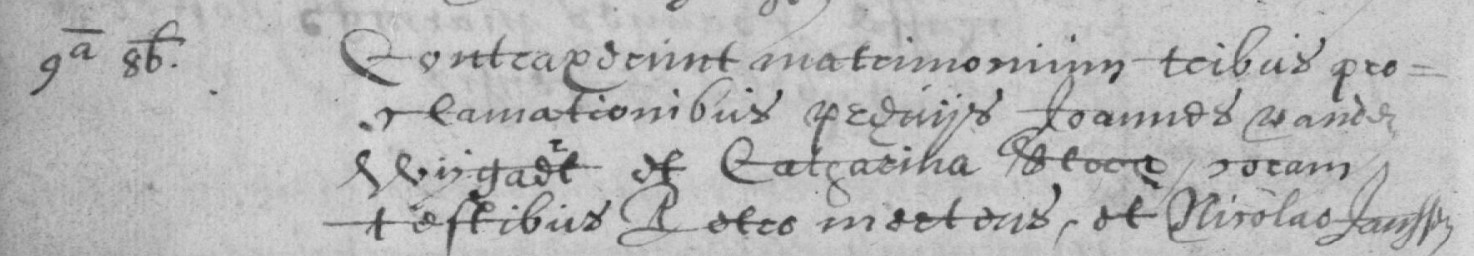 9ª 8b. Contraxerunt matrimonium tribus pro=
clamationibus prævijs Joannes vander
Wijgaert et Catharina coram
testibus Petro mertens, et Nicolao Janssen